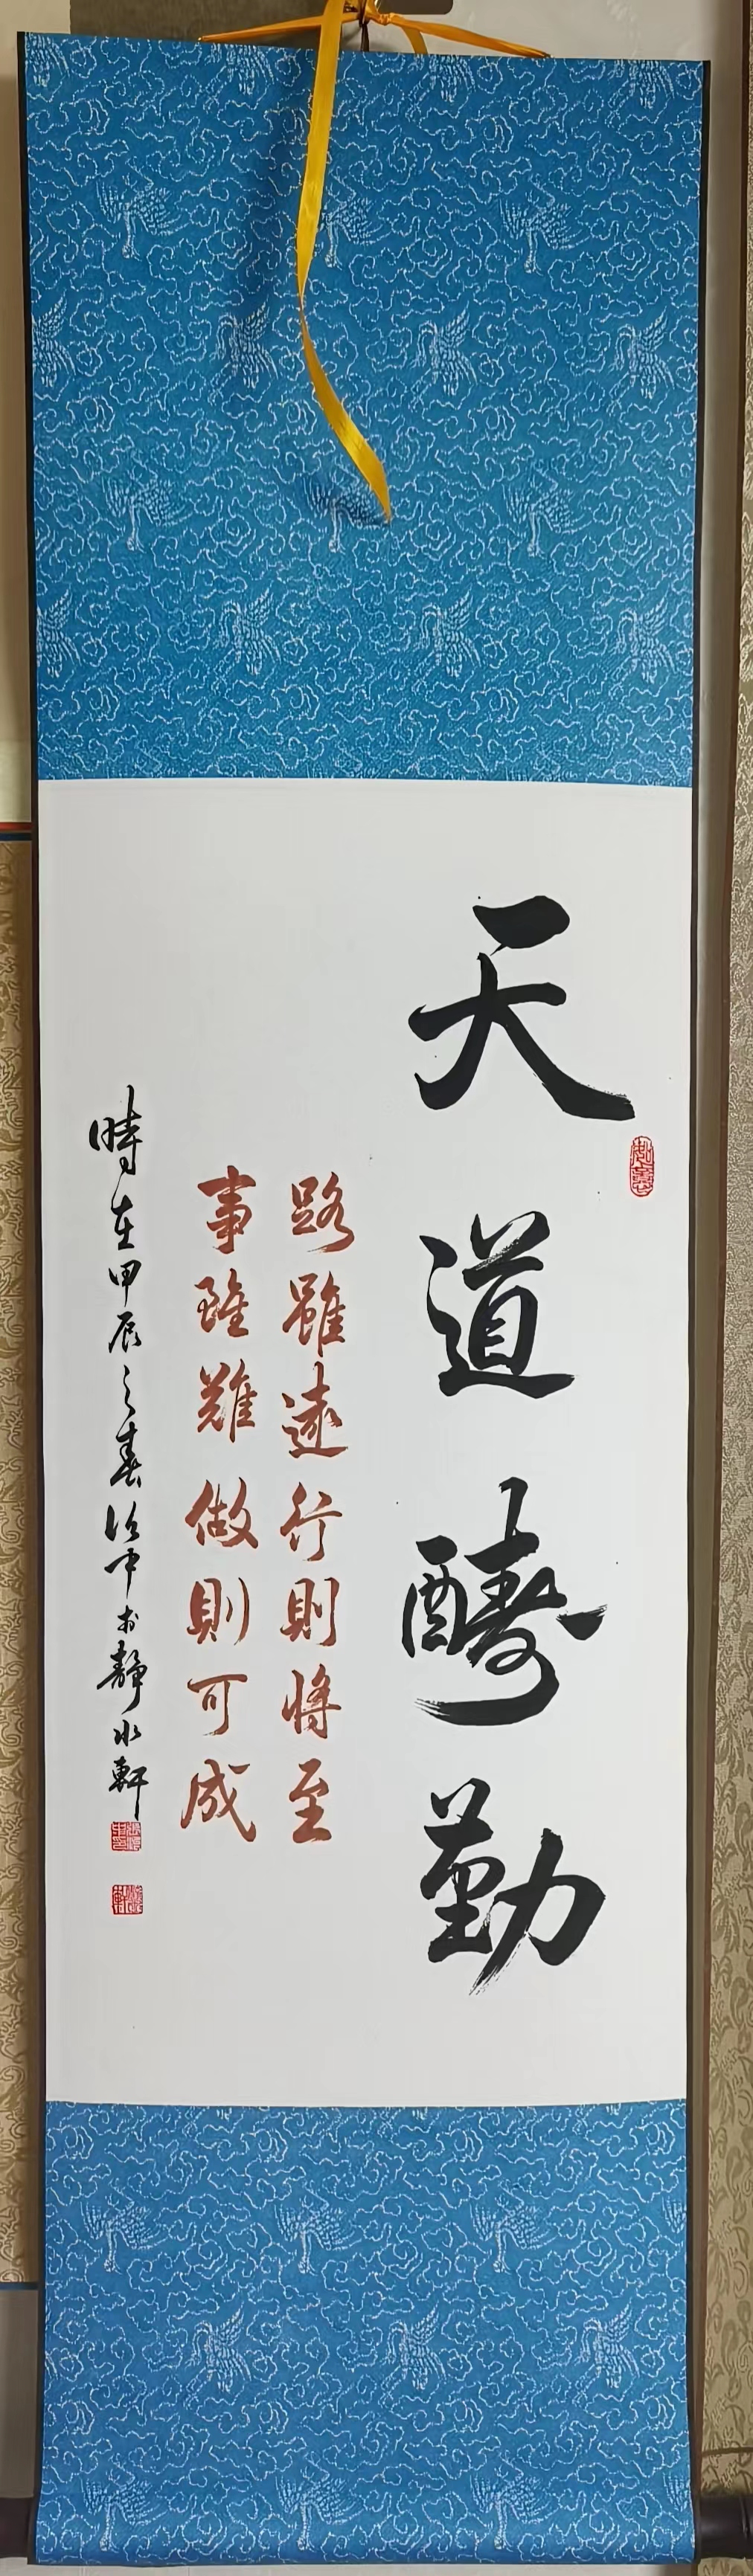 天道酬勤
路雖遠行則將至
事雖難做則可成
時在甲辰之春洪中於靜水軒